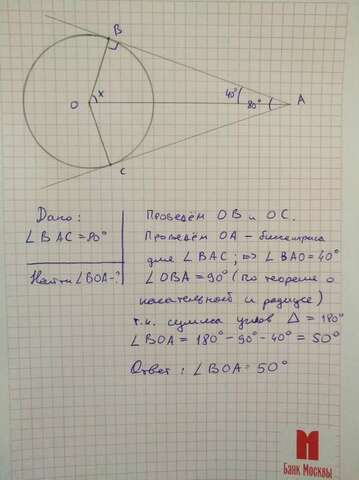 B
40°
80°
A
O
x
C
Дано:
∠BAC = 80°
Найти ∠BOA - ?
Проведём OB и OC.
Проведём OA - биссектриса
для ∠BAC; => ∠BAO = 40°
∠OBA = 90° (по теореме о
касательной и радиусе)
т.к. сумма углов Δ = 180°
∠BOA = 180° - 90° - 40° = 50°
Ответ: ∠BOA = 50°
Банк Москвы